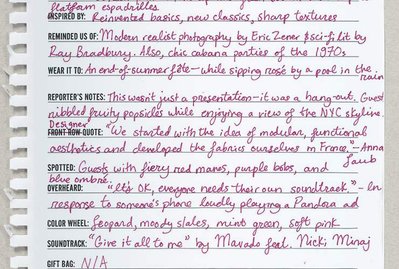 platform espadrilles
INSPIRED BY: Reinvented basics, new classics, sharp textures
REMINDED US OF: Modern realist photography by Eric Zener & sci-fi lit by
Ray Bradbury. Also, chic cabana parties of the 1970s
WEAR IT TO: An end-of-summer fête—while sipping rosé by a pool in the
rain
REPORTER'S NOTES: This wasn't just a presentation—it was a hang-out. Guests
nibbled fruity popsicles while enjoying a view of the NYC skyline.
Designer
FRONT ROW QUOTE: "We started with the idea of modular, functional
aesthetics and developed the fabrics ourselves in France."—Anna
Laub
SPOTTED: Guests with fiery red manes, purple bobs, and
blue ombre.
OVERHEARD: "It's OK, everyone needs their own soundtrack."—In
response to someone's phone loudly playing a Pandora ad
COLOR WHEEL: Leopard, moody slates, mint green, soft pink
SOUNDTRACK: "Give it all to me" by Mavado feat. Nicki Minaj
GIFT BAG: N/A